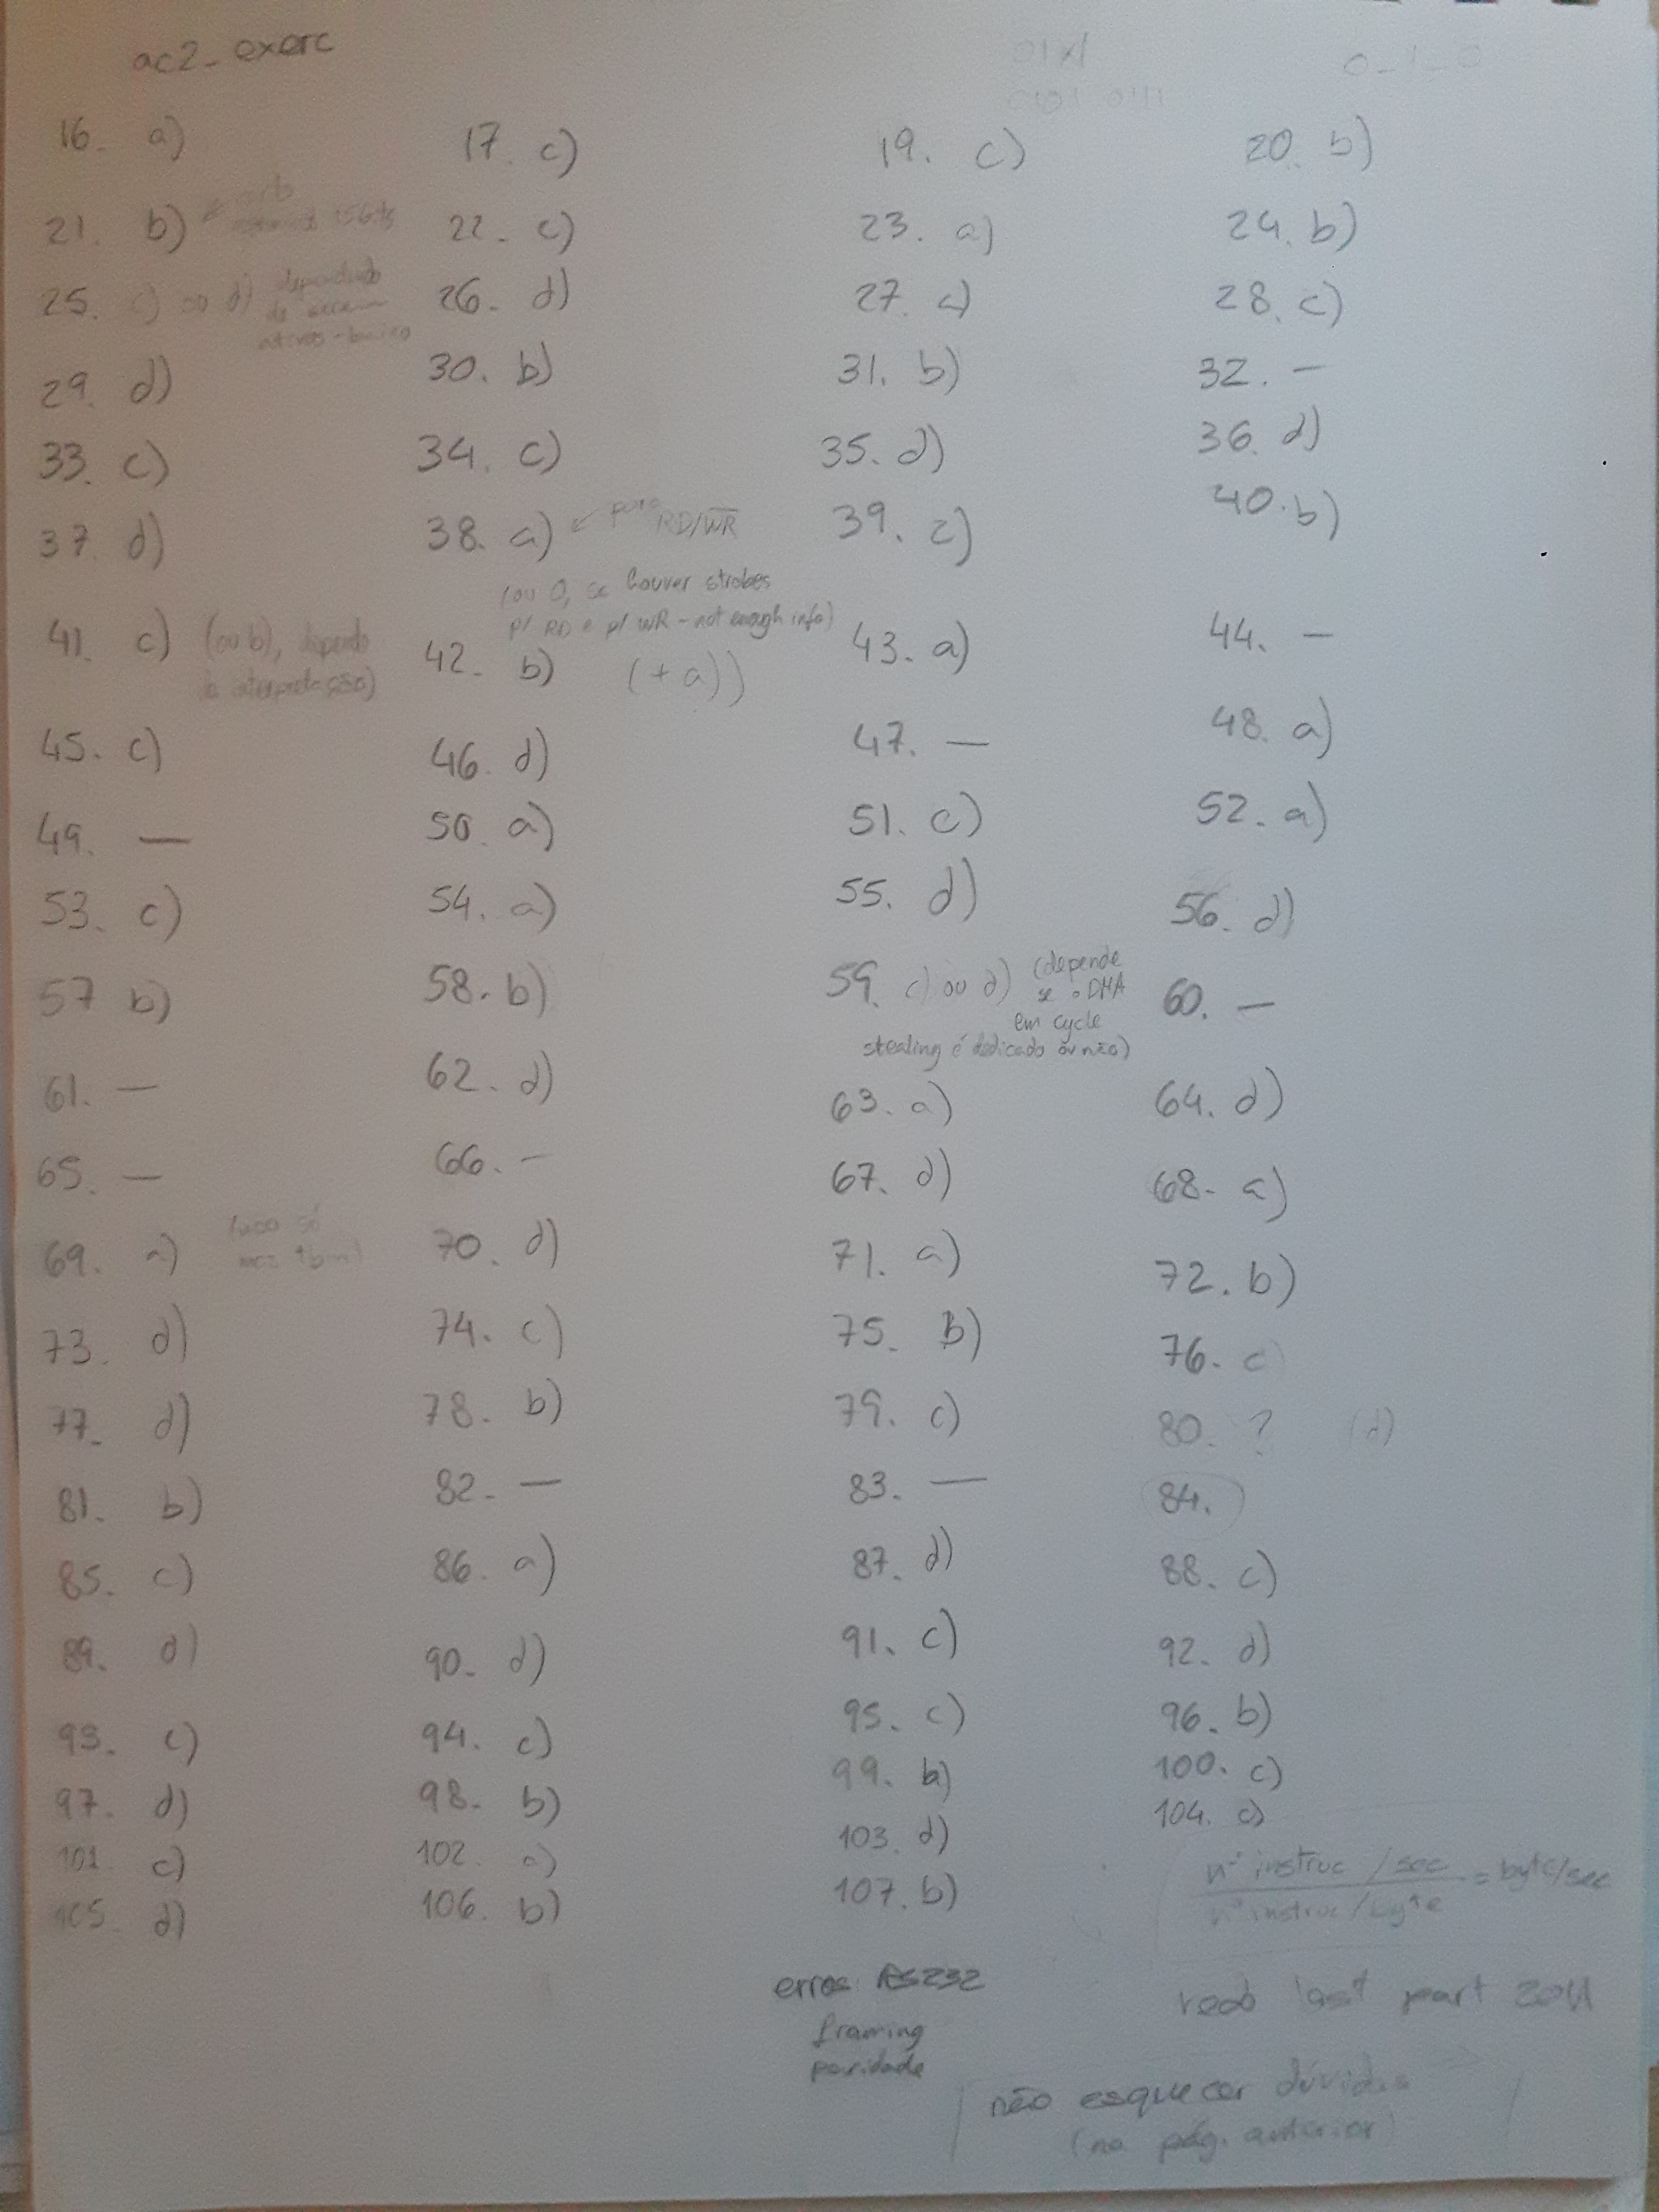 ac2_exerc
16. a) 17. c) 19. c) 20. b)
21. b) 22. c) 23. a) 24. b)
25. c) ou d) dependendo
de
ativos-baixo
26. d) 27. c) 28. c)
29. d) 30. b) 31. b) 32. —
33. c) 34. c) 35. d) 36. d)
37. d) 38. a) ← para RD/WR
(ou 0, se houver strobes
p/ RD e p/ WR - not enough info)
39. c) 40. b)
41. c) (ou b), depende
da interpretação)
42. b) (+ a)) 43. a) 44. —
45. c) 46. d) 47. — 48. a)
49. — 50. a) 51. c) 52. a)
53. c) 54. a) 55. d) 56. d)
57 b) 58. b) 59. c) ou d) (depende
se o DMA
em cycle
stealing é dedicado ou não)
60. —
61. — 62. d) 63. a) 64. d)
65. — 66. — 67. d) 68. a)
69. a) 70. d) 71. a) 72. b)
73. d) 74. c) 75. b) 76. c)
77. d) 78. b) 79. c) 80. ? (d)
81. b) 82. — 83. — 84.
85. c) 86. a) 87. d) 88. c)
89. d) 90. d) 91. c) 92. d)
93. c) 94. c) 95. c) 96. b)
97. d) 98. b) 99. b) 100. c)
101. c) 102. a) 103. d) 104. c)
105. d) 106. b) 107. b)
nº instruc / sec
nº instruc / byte
= byte/sec
erros RS232
framing
paridade
redo last part 2011
não esquecer dúvidas
(na pág. anterior)